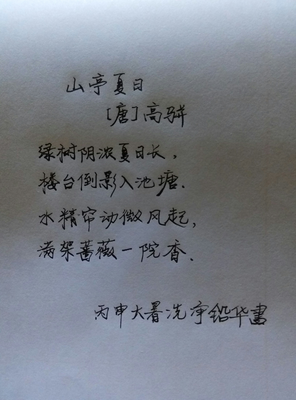 山亭夏日
[唐]高骈
绿树阴浓夏日长，
楼台倒影入池塘.
水精帘动微风起，
满架蔷薇一院香.
丙申大暑洗净铅华書